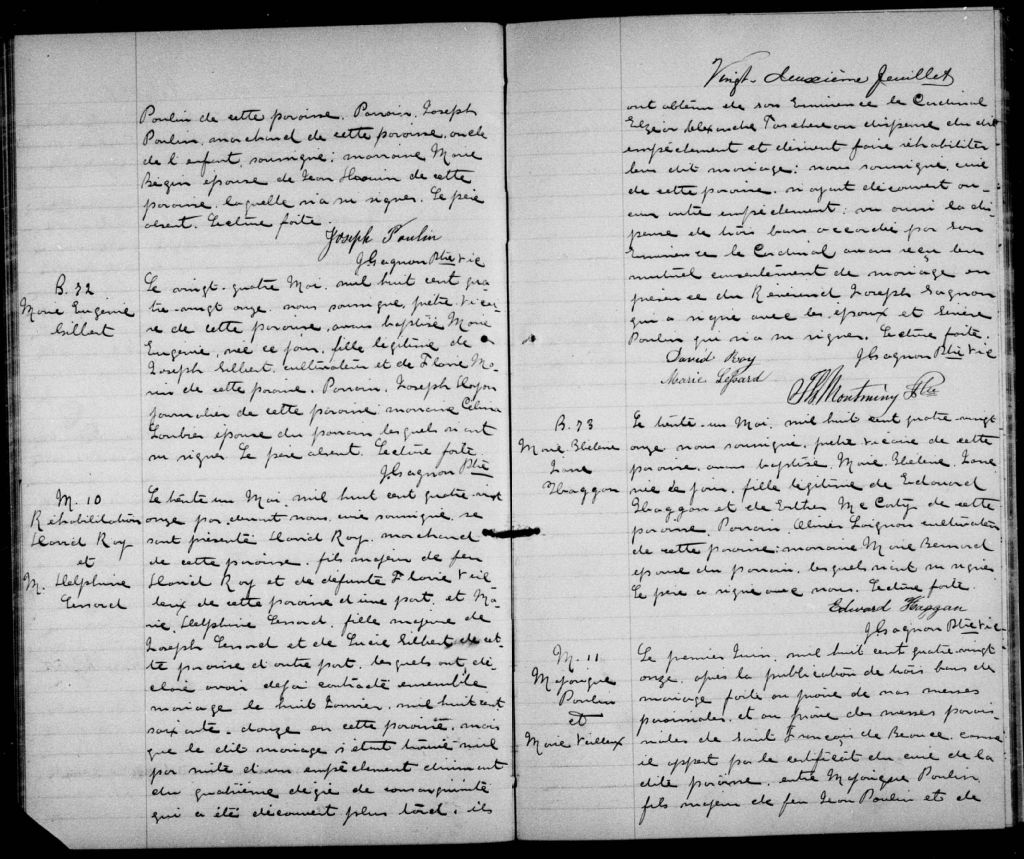 Poulin de cette paroisse. Parrain, Joseph
Poulin, marchand de cette paroisse, oncle
de l'enfant, soussigné; marraine Marie
Bégin épouse de Jean de cette
paroisse, laquelle n'a su signer. Le père
absent. Lecture faite.
Joseph Poulin
JGagnon Ptre Vic
B. 32
Marie Eugénie
Gilbert
Le vingt-quatre Mai, mil huit cent qua-
tre-vingt onze, nous soussigné, prêtre vicai-
re de cette paroisse, avons baptisé Marie
Eugénie, née ce jour, fille légitime de
Joseph Gilbert, cultivateur et de Flavie Mo-
rin de cette paroisse. Parrain, Joseph
journalier de cette paroisse; marraine Célina
Loubier épouse du parrain, lesquels n'ont
su signer. Le père absent. Lecture faite.
JGagnon Ptre
M. 10
Réhabilitation
David Roy
et
M. Delphine
Lessard
Le trente un Mai, mil huit cent quatre-vingt
onze, par devant nous, curé soussigné, se
sont présentés David Roy, marchand
de cette paroisse, fils majeur de feu
David Roy et de défunte Flavie Veil-
leux de cette paroisse d'une part, et Ma-
rie Delphine Lessard, fille majeure de
Joseph Lessard et de Lucie Gilbert de cet-
te paroisse d'autre part, lesquels ont dé-
claré avoir déjà contracté ensemble
mariage le huit Janvier, mil huit cent
soixante-douze en cette paroisse, mais
que le dit mariage s'était trouvé nul
par suite d'un empêchement dirimant
du quatrième degré de consanguinité
qui a été découvert plus tard, ils
Vingt-deuxième feuillet
ont obtenu de son Eminence le Cardinal
Elzéar Alexandre Taschereau dispense du dit
empêchement et désirent faire réhabiliter
leur dit mariage; nous soussigné, curé
de cette paroisse, n'ayant découvert au-
cun autre empêchement; vu aussi la dis-
pense de trois bans accordée par son
Eminence le Cardinal avons reçu leur
mutuel consentement de mariage en
présence du Révérend Joseph Gagnon
qui a signé avec les époux et
Poulin qui n'a su signer. Lecture faite.
David Roy
JGagnon Ptre Vic
Marie Lessard
Montminy Ptre
B. 33
Marie Hélène
Jane
Haggan
Le trente-un Mai, mil huit cent quatre-vingt
onze nous soussigné, prêtre vicaire de cette
paroisse, avons baptisé Marie Hélène Jane
née ce jour, fille légitime de Edouard
Haggan et de Esther Mc Carty de cette
paroisse. Parrain, cultivateur
de cette paroisse; marraine Marie Bernard
épouse du parrain, lesquels n'ont su signer.
Le père a signé avec nous. Lecture faite.
Edward Haggan
JGagnon Ptre Vic
M. 11
Poulin
et
Marie Veilleux
Le premier Juin, mil huit cent quatre-vingt
onze, après la publication de trois bans de
mariage faite au prône de nos messes
paroissiales, et au prône des messes parois-
siales de Saint François de Beauce, comme
il appert par le certificat du curé de la
dite paroisse, entre Poulin,
fils majeur de feu Jean Poulin et de